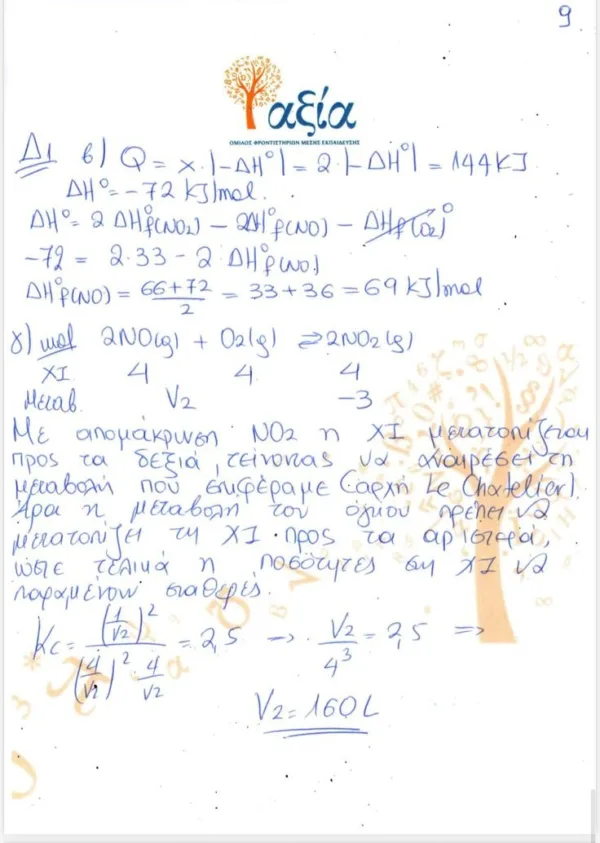 9
αξία
ΟΜΙΛΟΣ ΦΡΟΝΤΙΣΤΗΡΙΩΝ ΜΕΣΗΣ ΕΚΠΑΙΔΕΥΣΗΣ
Δ1 β) Q = x·|-ΔH°| = 2·|-ΔH°| = 144 KJ
ΔH° = -72 KJ/mol.
ΔH° = 2 ΔH°f(NO2) - 2ΔH°f(NO) - ΔHf(O2)°
-72 = 2·33 - 2·ΔH°f(NO)
ΔH°f(NO) = 66+72/2 = 33+36 = 69 KJ/mol
γ) mol 2NO(g) + O2(g) ⇌ 2NO2(g)
XI 4 4 4
Μεταβ. V2 -3
Με απομάκρυνση NO2 η ΧΙ μετατοπίζεται
προς τα δεξιά, τείνοντας να αναιρέσει τη
μεταβολή που επιφέραμε (αρχή Le Chatelier)
Άρα η μεταβολή του όγκου πρέπει να
μετατοπίζει τη ΧΙ προς τα αριστερά,
ώστε τελικά η ποσότητες στη ΧΙ να
παραμένουν σταθερές.
Kc = (1/V2)² / (4/V2)² 4/V2 = 2,5 → V2/4³ = 2,5 ⇒
V2 = 160 L